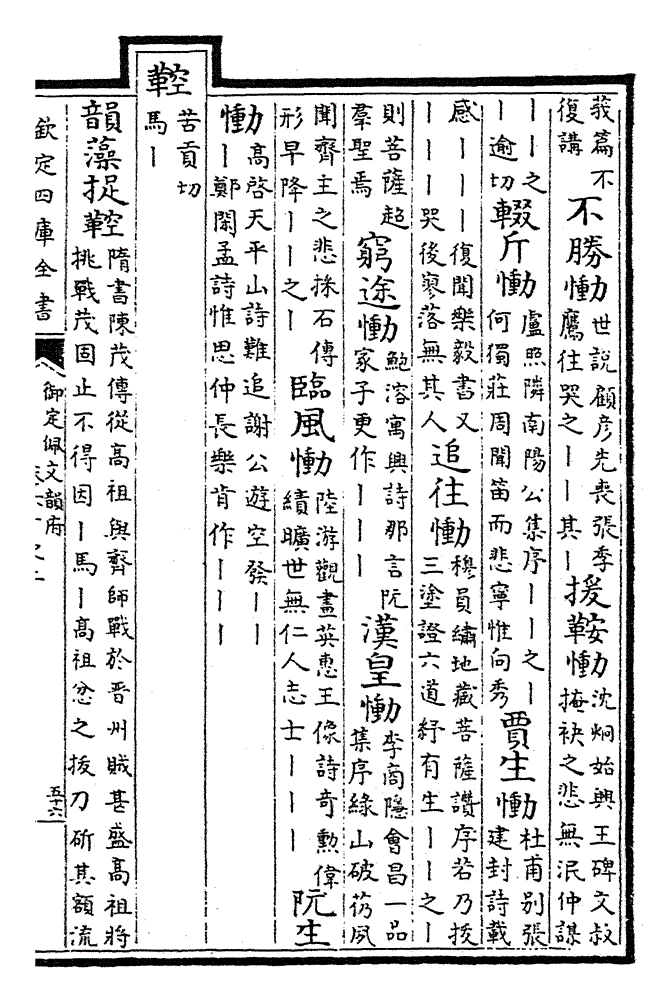 莪篇不
復講
不勝慟
世説顧彦先喪張季
鷹往哭之||其|
援鞍慟
沈炯始興王碑文叔
掩袂之悲無泯仲謀
||之|
|逾切
輟斤慟
盧照隣南陽公集序||之|
何獨莊周聞笛而悲寧惟向秀
賈生慟
杜甫别張
建封詩載
感|||復聞樂毅書又
|||哭後寥落無其人
追往慟
穆員繡地藏菩薩讚序若乃拔
三塗證六道紓有生||之|
則菩薩超
羣聖焉
窮途慟
鮑溶寓興詩那言阮
家子更作|||
漢皇慟
李商隱會昌一品
集序緣山破芿夙
聞齊主之悲採石傳
形早降||之|
臨風慟
陸游觀畫英惠王像詩奇勲偉
績曠世無仁人志士|||
阮生
慟
高啓天平山詩難追謝公遊空發||
|鄭閎孟詩惟思仲長樂肯作|||
鞚
苦貢切
馬|
韻藻捉鞚
隋書陳茂傳從高祖與齊師戰於晋州賊甚盛高祖將
挑戰茂固止不得因|馬|高祖忿之拔刀斫其額流
欽定四庫全書
御定佩文韻府
五十六